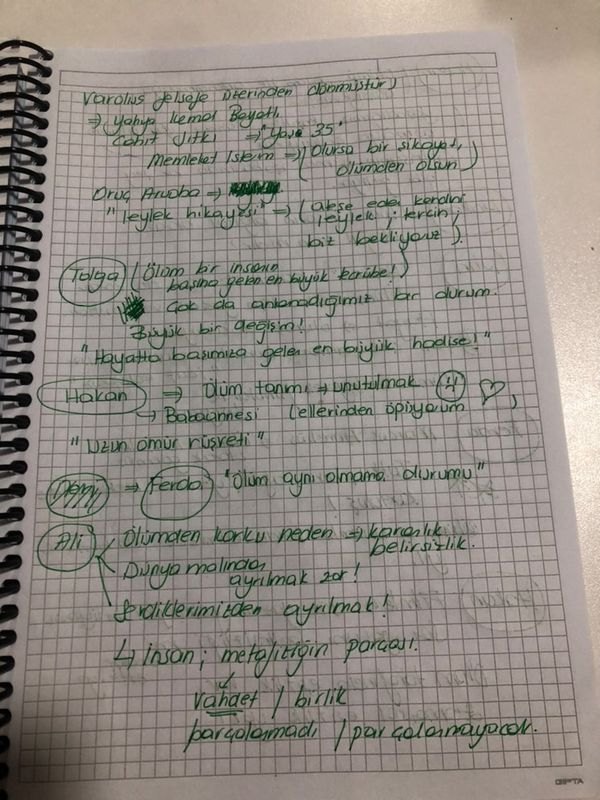 Varoluş felsefe üzerinden dönmüştür)
⇒ Yahya Kemal Beyatlı
Cahit Sıtkı ⇒ "Yaş 35"
Memleket İsterim ⇒ (Olursa bir şikayet,
ölümden olsun)
Oruç Aruoba ⇒
"leylek hikayesi" ⇒ ( eden kendini
leylek ; tercih ;
biz bekliyoruz ).
Tolga (Ölüm bir insanın
başına gelen en büyük tecrübe!)
Çok da anlamadığımız bir durum.
Büyük bir değişim!
"Hayatta başımıza gelen en büyük hadise!"
Hakan ⇒ Ölüm tanımı ⇒ unutulmak
→ Babaannesi (ellerinden öpüyorum ♡)
"Uzun ömür rüşveti"
⇒ Ferda "Ölüm aynı olmama durumu"
Ali Ölümden korku neden ⇒ karanlık
belirsizlik.
Dünya malından
ayrılmak zor!
Sevdiklerimizden ayrılmak!
↳ insan; metafiziğin parçası.
↓
vahdet / birlik
parçalanmadı / parçalanmayacak.
GIPTA